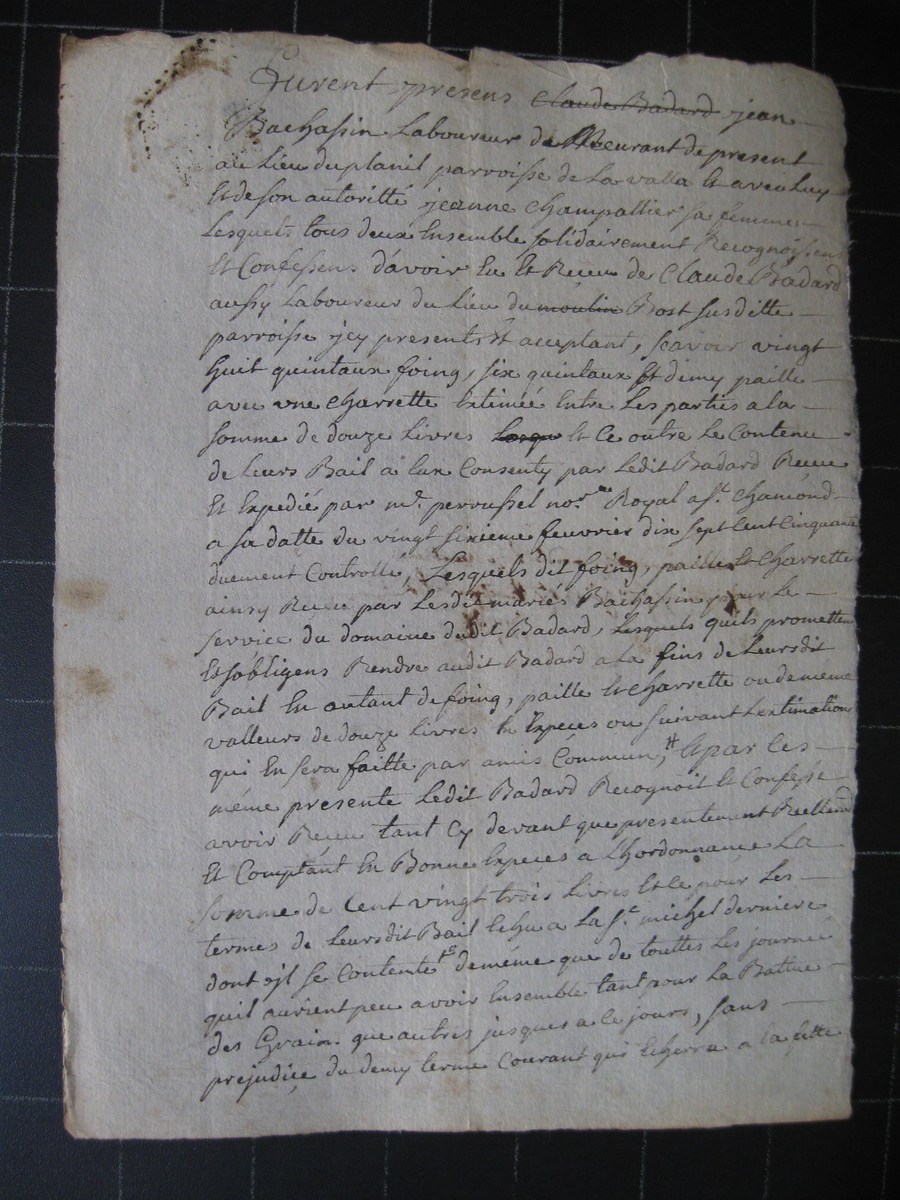 Furent presens Claude Badard jean
Bachassin Laboureur demeurant de present
au Lieu duplanil parroisse de La valla Et avec Luy
Et de son autoritté jeanne champallier sa femme
Lesquels tous deux Ensemble solidairement Recognoissens
Et Confessens davoir Eu Et Receu de Claude Badard
aussy Laboureur du Lieu du moulin Bost susditte
parroisse jcy presents Et acceptant, scavoir vingt
huit quintaux foing, six quintaux Et demy paille
avec vne charrette Extimée Entre Les parties a la
somme de douze Livres Et Ce outre Le Contenu
de Leurs Bail a Eux Consenty par Ledit Badard Receu
Et Expedié par mr. perrussel nore Royal a st. chamond
a sa datte du vingt sixieme feuvrier dix sept Cent Cinquante
duement Controllé, Lesquels dit foing, paille Et Charrette
ainsy Receu par Lesdit mariés Bachassin pour Le
service du domaine dudit Badard, Lesquels quils promettens
Et sobligens Rendre audit Badard a la fins de Leursdit
Bail En autant de foing, paille Et charrette ou de meme
valleurs de douze Livres En Especes ou suivant Lextimations
qui En sera faitte par amis Commun, Et par Les
même presente Ledit Badard Recognoit Et Confesse
avoir Receu tant Cy devant que presentement Reellement
Et Comptant En Bonne Especes a Lhordonnance La
somme de Cent vingt trois Livres Et Ce pour Les
termes de Leursdit Bail Echu a La st. michel derniere
dont jl se Contente de même que de touttes Les journée
quil auroient peu avoir Ensemble tant pour La Battue
des Grain que autres jusques a Ce jours, sans
prejudice du demy terme Courant qui Echerra a la fette